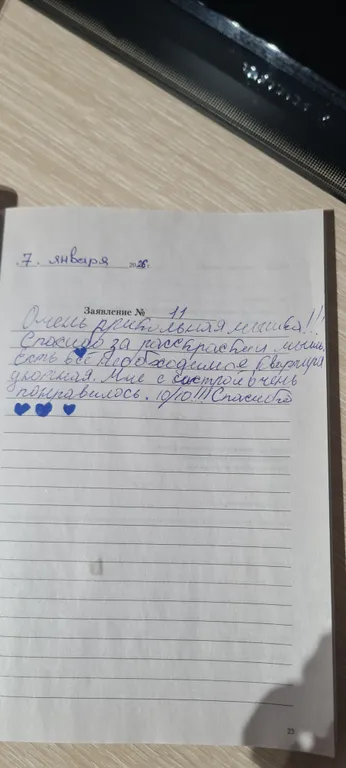 7. января 2026г.
Заявление № 11
Очень прикольная мышка!!!
Спасибо за расскраски и мыло.
есть всё необходимое Квартира
уютная. Мне с систрой очень
понравилось. 10/10!!! Спасибо
23